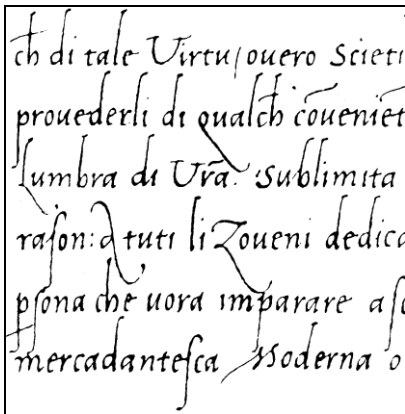 ch̄ di tale Virtu, ouero Scieti
prouederli di qualch̄ cōueniēt
Lumbra di Vrā. Sublimita
raſon: A tuti li Zoueni dedica
pſona che uora imparare a ſc
mercadanteſca Moderna o